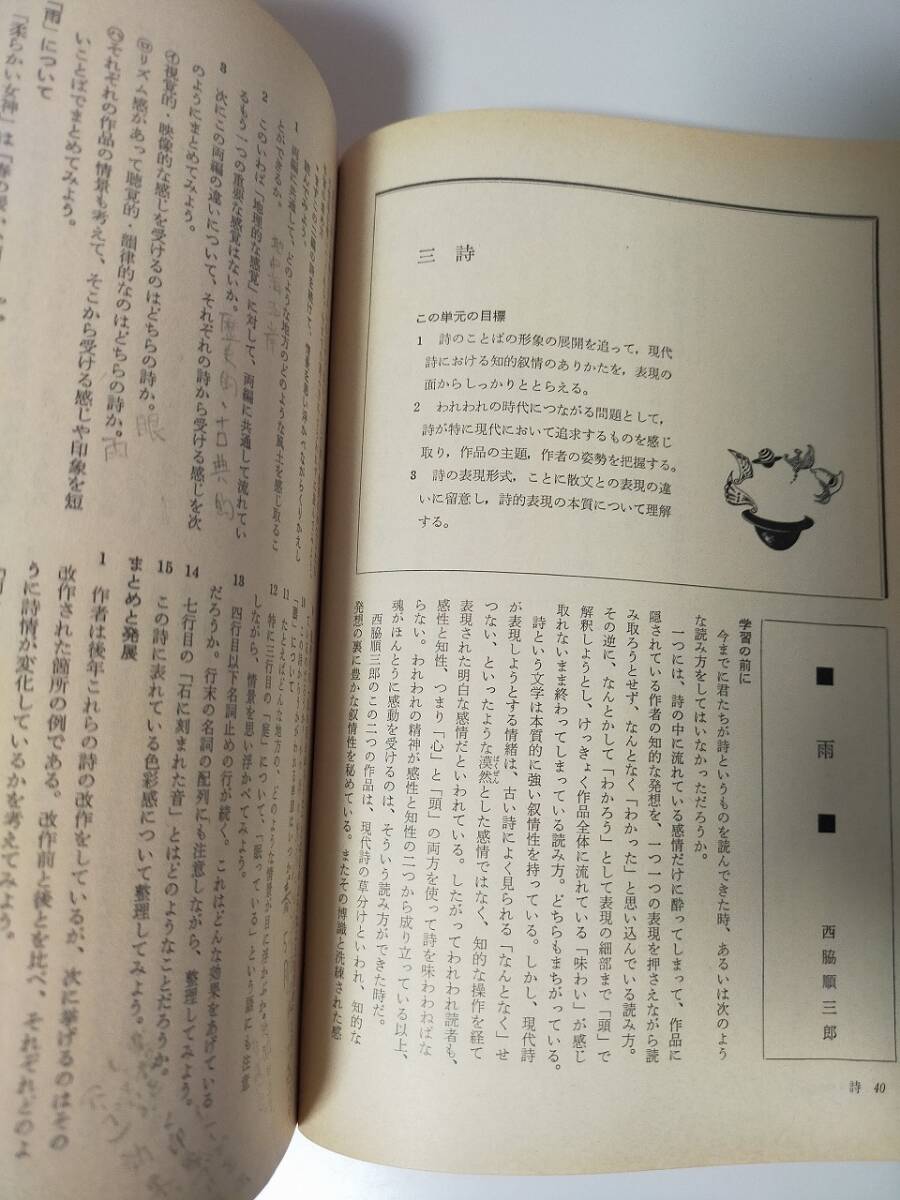 三　詩
この単元の目標
1　詩のことばの形象の展開を追って，現代
詩における知的叙情のありかたを，表現の
面からしっかりととらえる。
2　われわれの時代につながる問題として，
詩が特に現代において追求するものを感じ
取り，作品の主題，作者の姿勢を把握する。
3　詩の表現形式，ことに散文との表現の違
いに留意し，詩的表現の本質について理解
する。
■雨■
西脇順三郎
学習の前に
今までに君たちが詩というものを読んできた時、あるいは次のよう
な読み方をしてはいなかっただろうか。
一つには、詩の中に流れている感情だけに酔ってしまって、作品に
隠されている作者の知的な発想を、一つ一つの表現を押さえながら読
み取ろうとせず、なんとなく「わかった」と思い込んでいる読み方。
その逆に、なんとかして「わかろう」として表現の細部まで「頭」で
解釈しようとし、けっきょく作品全体に流れている「味わい」が感じ
取れないまま終わってしまっている読み方。どちらもまちがっている。
詩という文学は本質的に強い叙情性を持っている。しかし、現代詩
が表現しようとする情緒は、古い詩によく見られる「なんとなく」せ
つない、といったような漠然とした感情ではなく、知的な操作を経て
ばくぜん
表現された明白な感情だといわれている。したがってわれわれ読者も、
感性と知性、つまり「心」と「頭」の両方を使って詩を味わわねばな
らない。われわれの精神が感性と知性の二つから成り立っている以上、
魂がほんとうに感動を受けるのは、そういう読み方ができた時だ。
西脇順三郎のこの二つの作品は、現代詩の草分けといわれ、知的な
発想の裏に豊かな叙情性を秘めている。またその博識と洗練された感
詩　40
1　両編に共通して、どのような地方のどのような風土を感じ取るこ
とができるか。
2　このいわば「地理的な感覚」に対して、両編に共通して流れてい
るもう一つの重要な感覚はないか。
歴史的、古典的
3　次にこの両編の違いについて、それぞれの詩から受ける感じを次
のようにまとめてみよう。
㋑視覚的・映像的な感じを受けるのはどちらの詩か。眼
㋺リズム感があって聴覚的・韻律的なのはどちらの詩か。雨
㋩それぞれの作品の情景も考えて、そこから受ける感じや印象を短
いことばでまとめてみよう。
「雨」について
「柔らかい女神」は
12　特に三行目の「庭」について、「眠っている」という語にも注意
しながら、情景を思い浮かべてみよう。
13　四行目以下名詞止めの行が続く。これはどんな効果をあげている
だろうか。行末の名詞の配列にも注意しながら、整理してみよう。
14　七行目の「石に刻まれた音」とはどのようなことだろうか。
15　この詩に表れている色彩感について整理してみよう。
まとめと発展
1　作者は後年これらの詩の改作をしているが、次に挙げるのはその
改作された箇所の例である。改作前と後とを比べ、それぞれどのよ
うに詩情が変化しているかを考えてみよう。